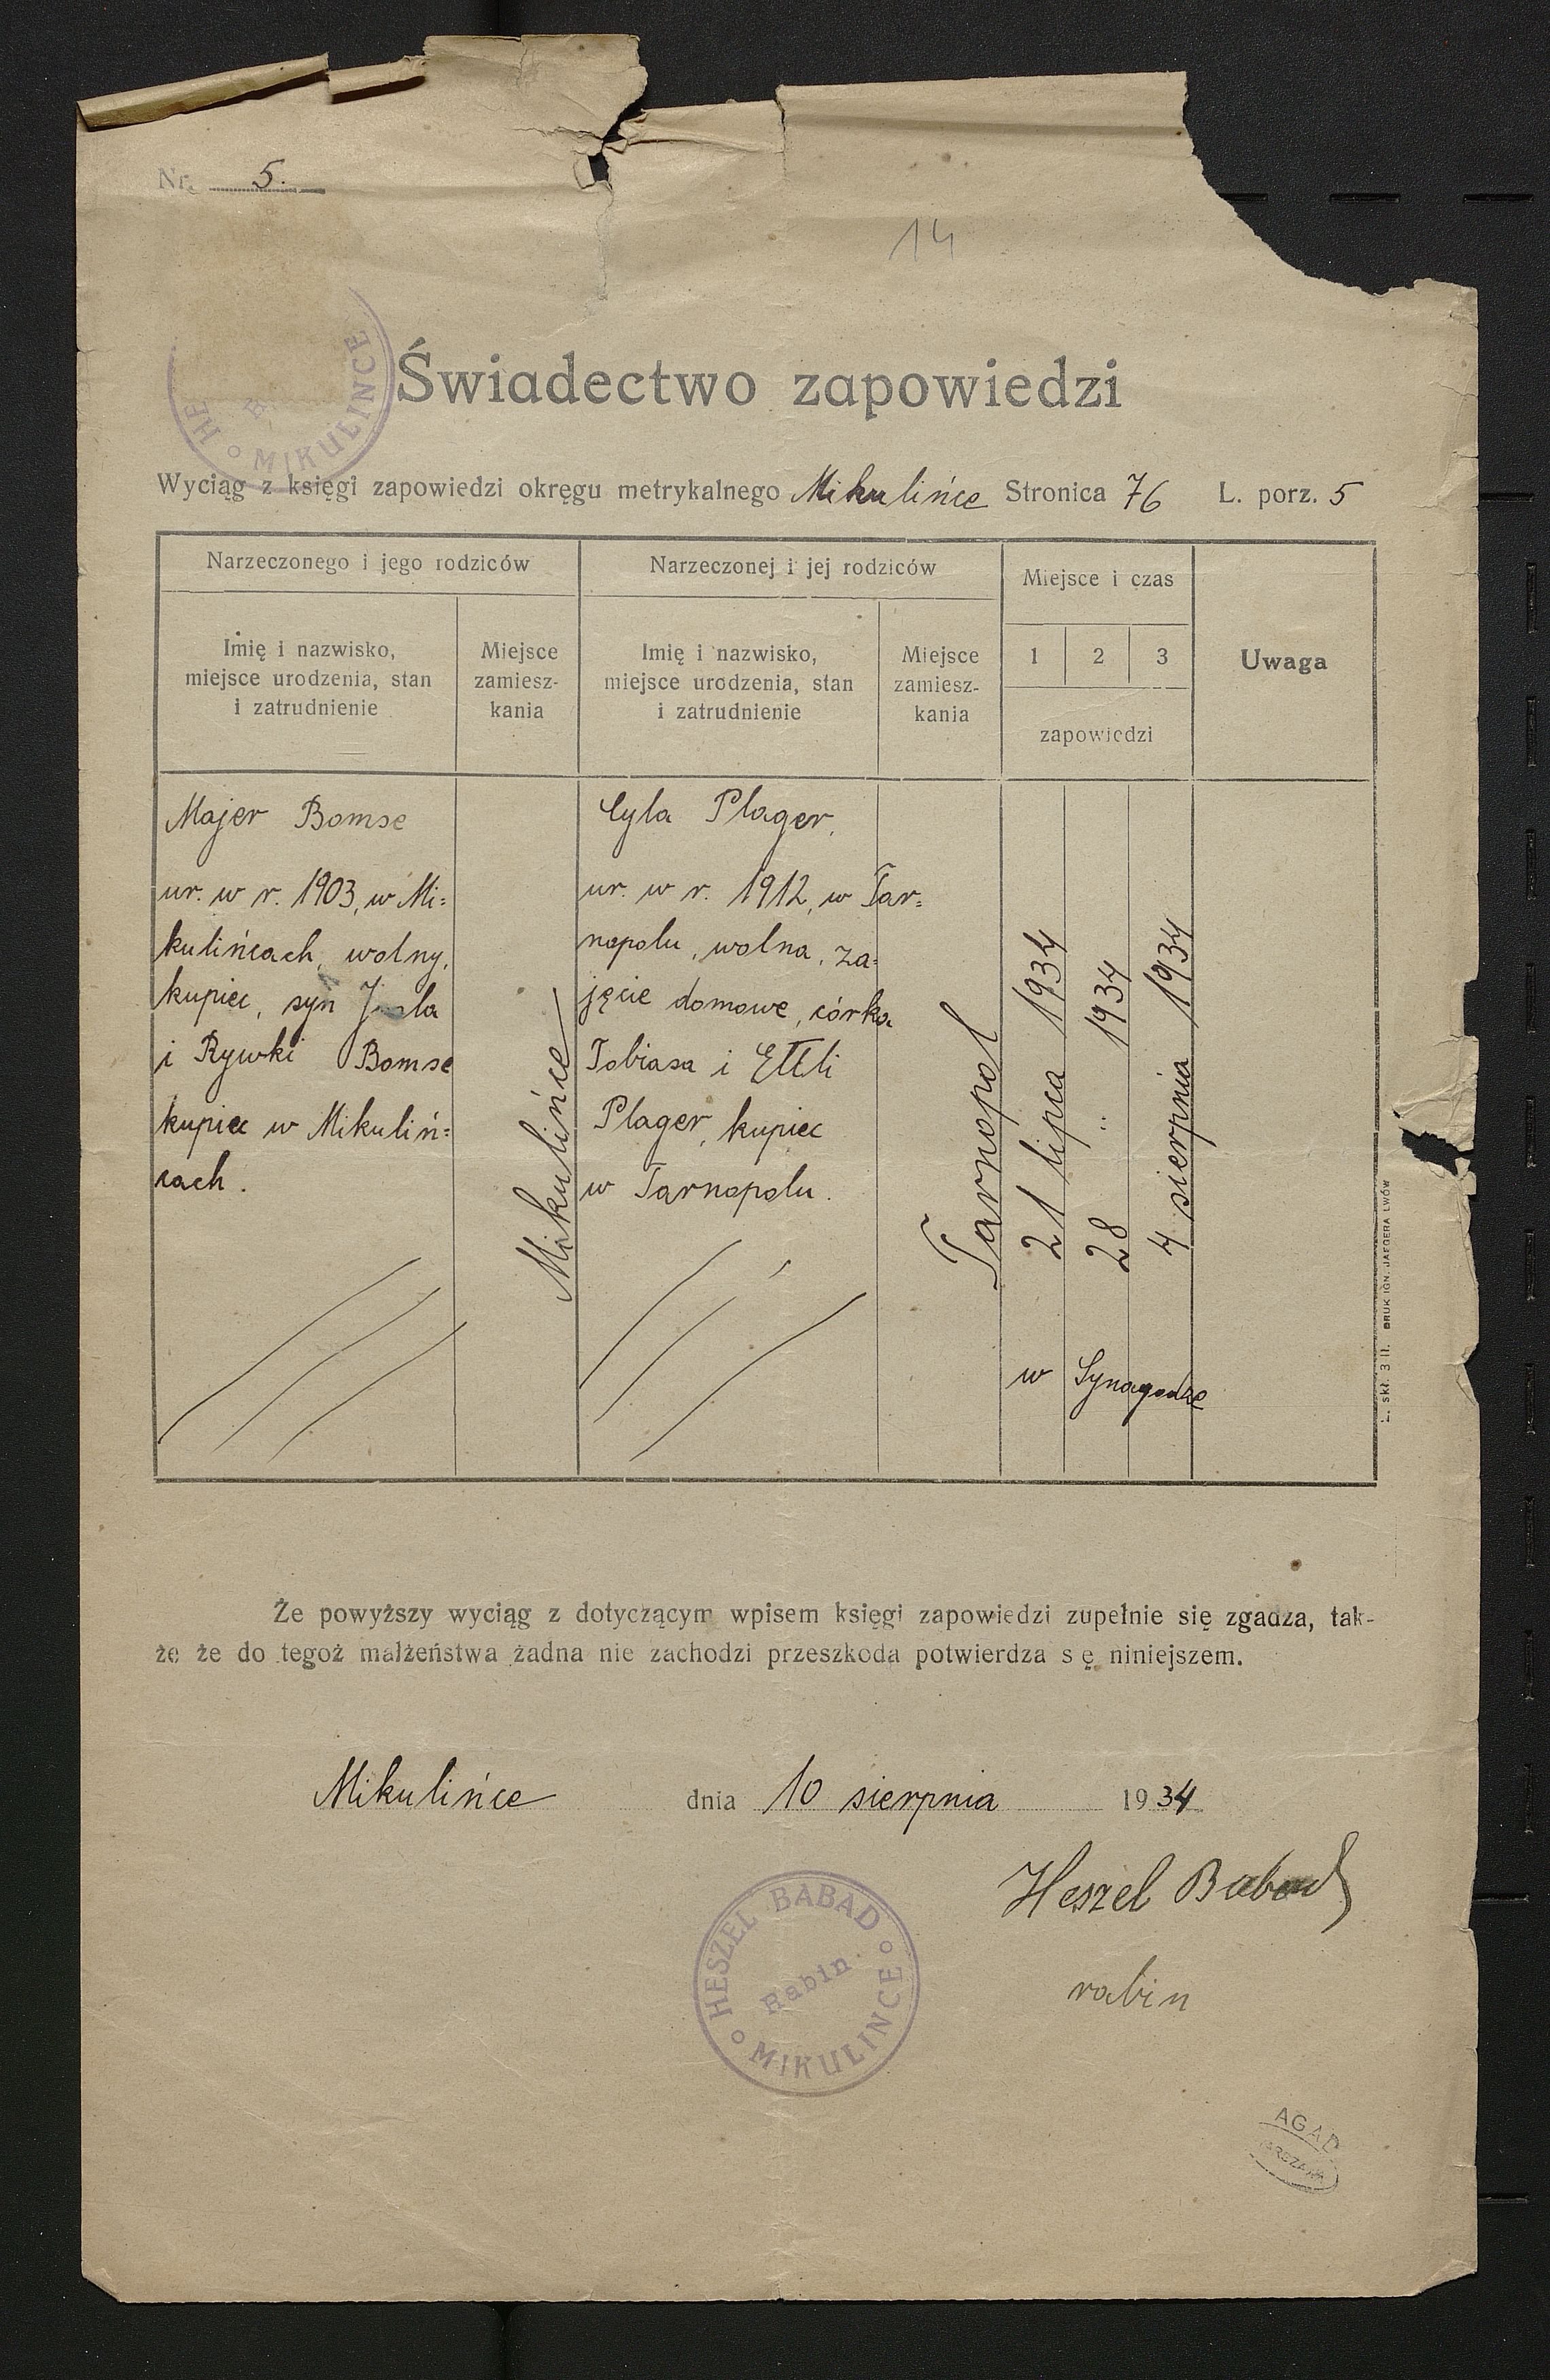 Nr. 5.
14
HE
MIKULINCE
Świadectwo zapowiedzi
Wyciąg z księgi zapowiedzi okręgu metrykalnego Mikulińce Stronica 76 L. porz. 5
Narzeczonego i jego rodziców
Imię i nazwisko,
miejsce urodzenia, stan
i zatrudnienie
Miejsce
zamiesz-
kania
Narzeczonej i jej rodziców
Imię i nazwisko,
miejsce urodzenia, stan
i zatrudnienie
Miejsce
zamiesz-
kania
Miejsce i czas
1 2 3
zapowiedzi
Uwaga
Majer Bomse
ur. w r. 1903, w Mi=
kulińcach, wolny,
kupiec, syn
i Rywki Bomse
kupiec w Mikuliń=
cach.
Mikulińce
Cyla Plager,
ur. w r. 1912, w Tar=
nopolu, wolna, za=
jęcie domowe, córka
Tobiasa i Ettli
Plager, kupiec
w Tarnopolu.
Tarnopol
21 lipca 1934
28 " 1934
4 sierpnia 1934
w Synagodze
L. skł. 3 II. DRUK IGN. JAEGERA LWÓW
Że powyższy wyciąg z dotyczącym wpisem księgi zapowiedzi zupełnie się zgadza, tak-
że że do tegoż małżeństwa żadna nie zachodzi przeszkoda potwierdza s ę niniejszem.
Mikulińce dnia 10 sierpnia 1934
Heszel Babad
rabin
HESZEL BABAD
Rabin.
MIKULINCE
AGAD